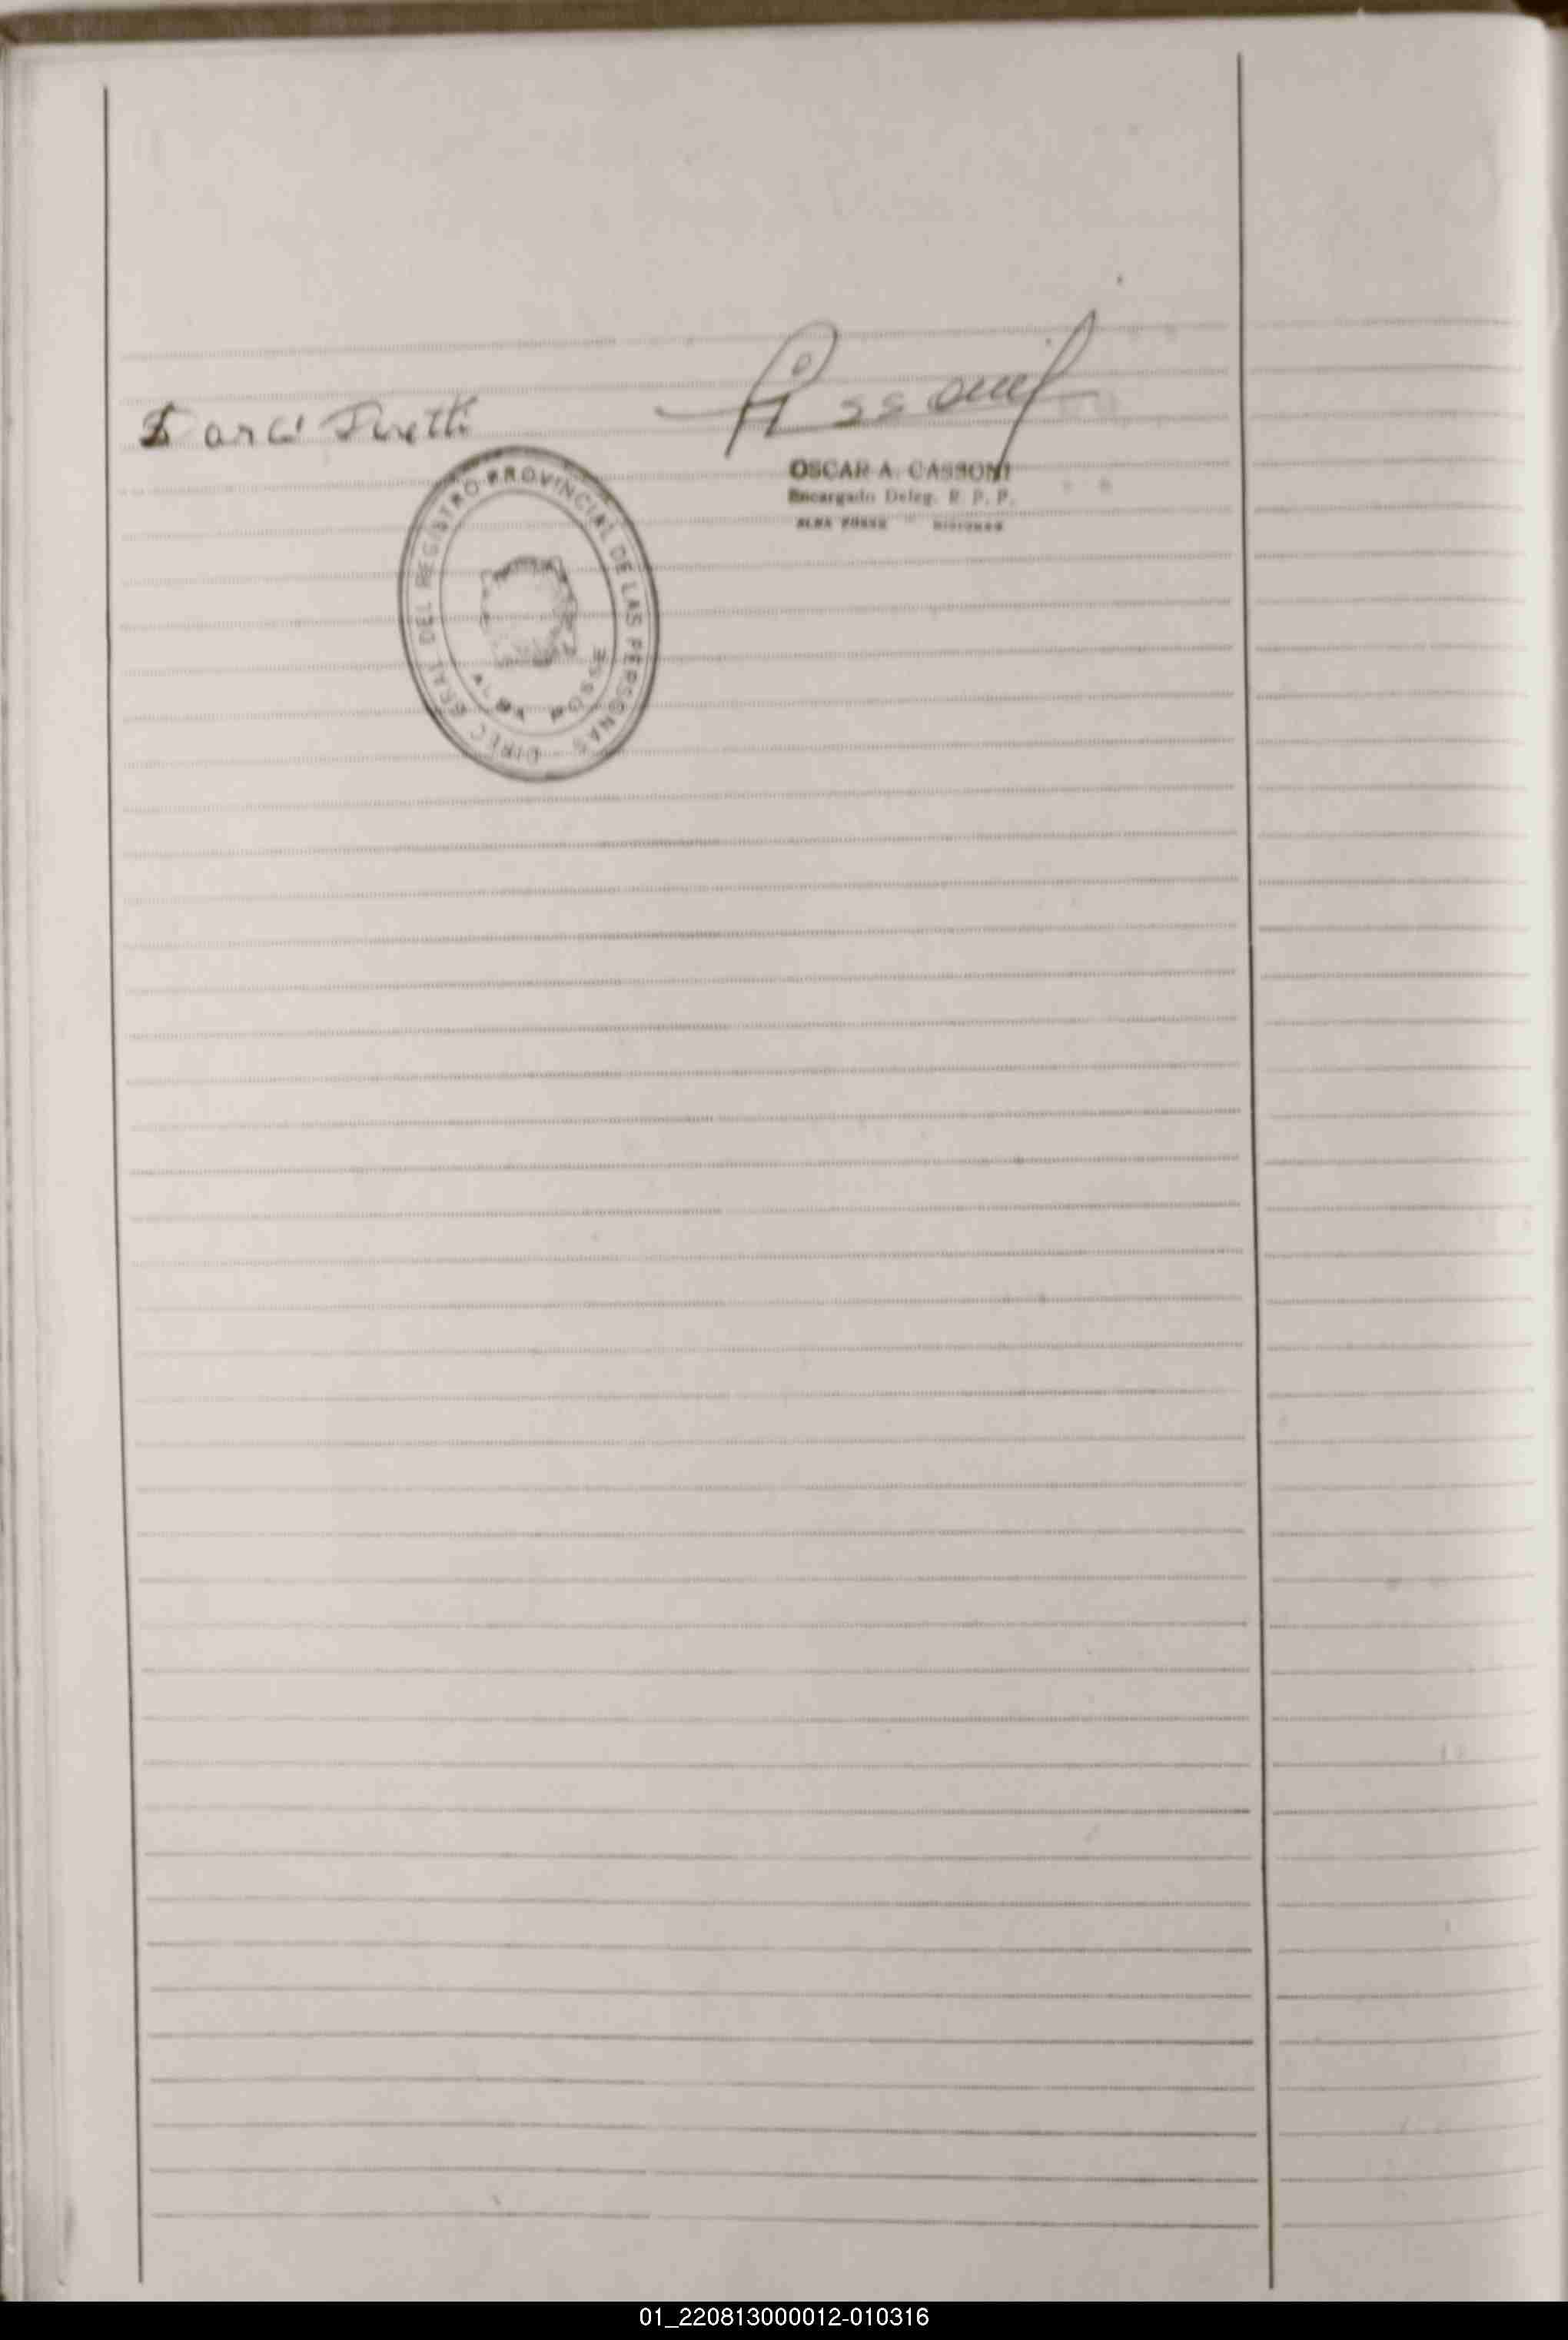 OSCAR A. CASSONI
Encargado Deleg. R. P. P.
ALBA POSSE - MISIONES
DIREC. GRAL. DEL REGISTRO PROVINCIAL DE LAS PERSONAS
ALBA POSSE
01_220813000012-010316